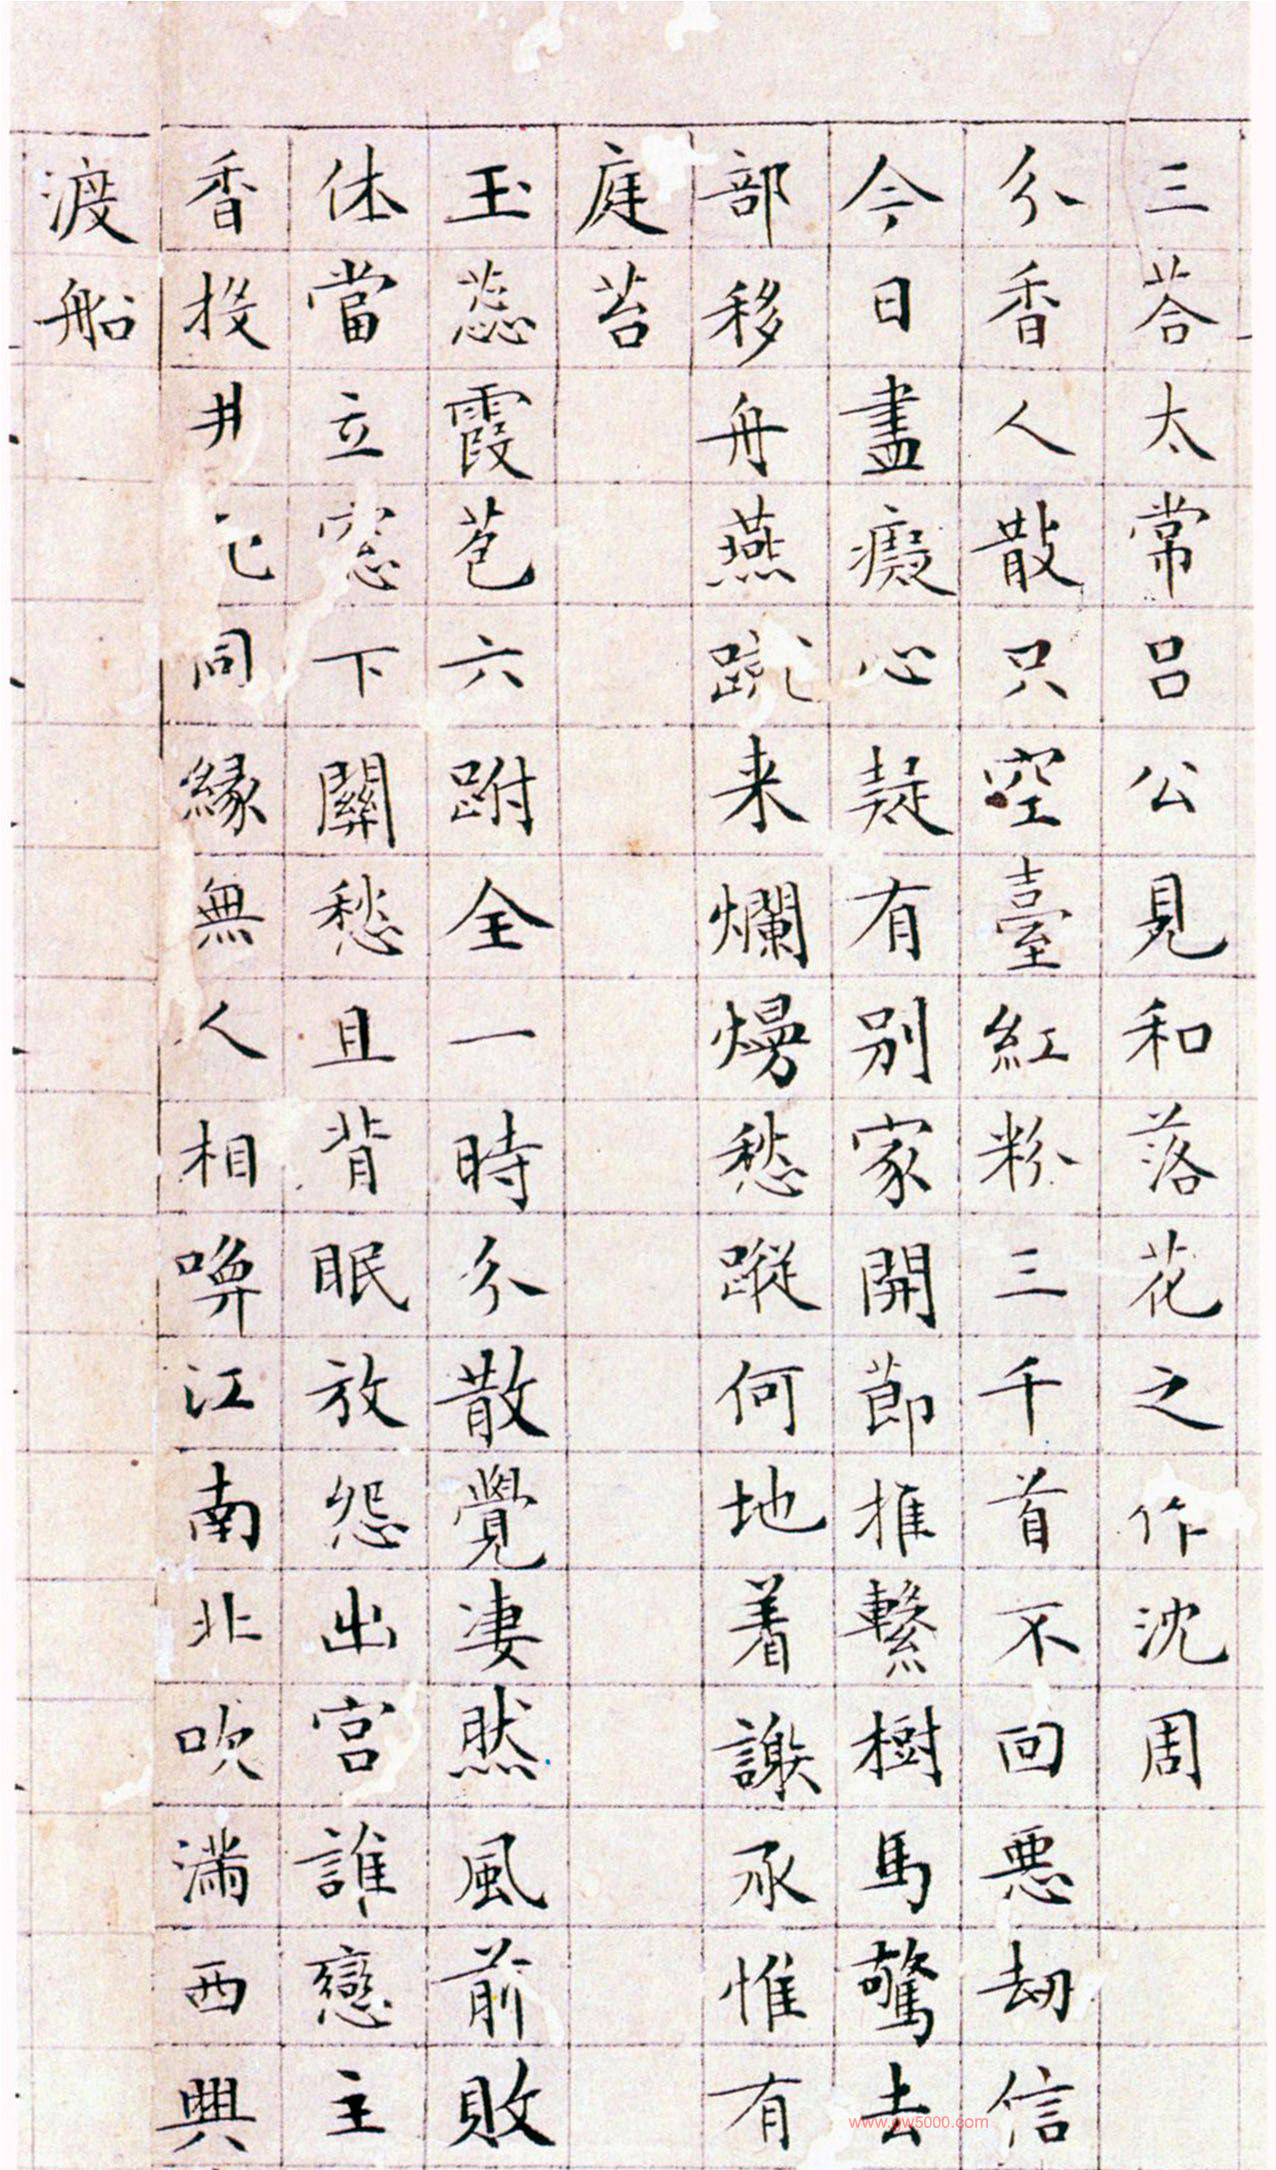 三荅太常呂公見和落花之作沈周
分香人散只空臺紅粉三千首不回惡劫信
今日盡癡心疑有別家開節推繫樹馬驚去
部移舟燕蹴来爛熳愁蹤何地着謝承惟有
庭苔
玉蕊霞苞六跗全一時分散覺凄然風前敗
休當立窓下關愁且背眠放怨出宮誰戀主
香投井同緣無人相喚江南北吹滿西興
渡船
www.gw5000.com